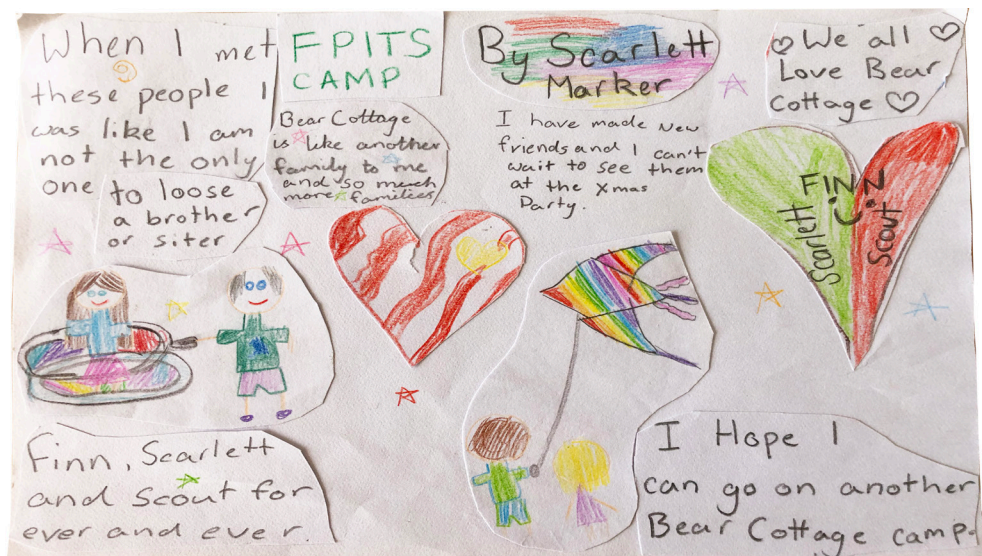 When I met
these people I
was like I am
not the only
one to loose
a brother
or siter
FPITS
CAMP
Bear Cottage
is like another
family to me
and so much
more families
By Scarlett
Marker
I have made new
friends and I can't
wait to see them
at the Xmas
Party.
We all
Love Bear
Cottage
FINN
Scarlett
Scout
Finn, Scarlett
and Scout for
ever and ever.
I Hope I
can go on another
Bear Cottage camp.